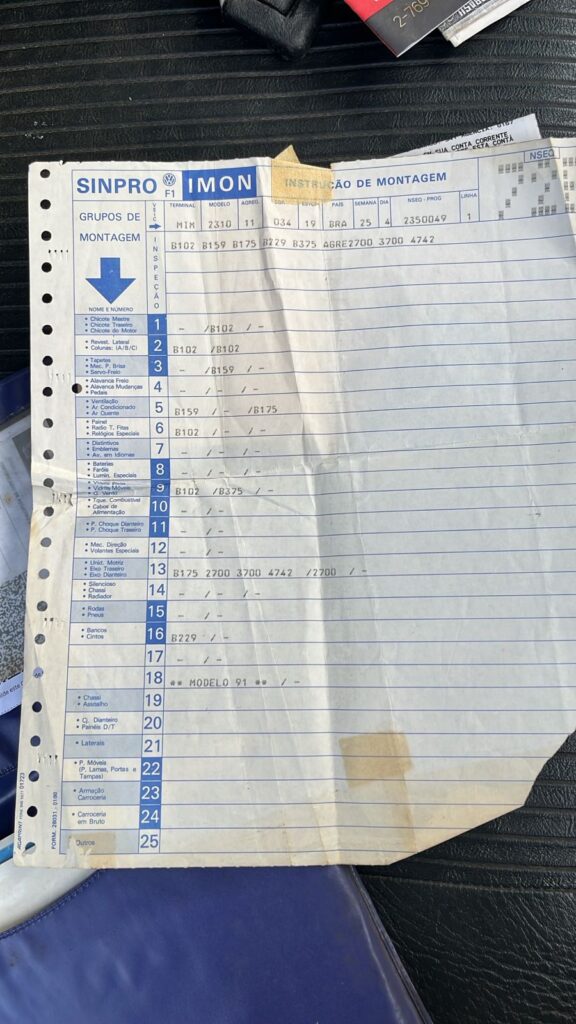 2-769
SINPRO F1 IMON INSTRUÇÃO DE MONTAGEM NSEQ
GRUPOS DE MONTAGEM
NOME E NÚMERO
TERMINAL MODELO AGREG. COR ESTOF. PAÍS SEMANA DIA NSEQ - PROG LINHA
MIM 2310 11 034 19 BRA 25 4 2350049 1
INSPEÇÃO
B102 B159 B175 B229 B375 AGRE2700 3700 4742
• Chicote Mestre
• Chicote Traseiro
• Chicote do Motor
1 - /B102 / -
• Revest. Lateral
• Colunas: (A/B/C)
2 B102 /B102
• Tapetes
• Mec. P. Brisa
• Servo-Freio
3 - /B159 / -
• Alavanca Freio
• Alavanca Mudanças
• Pedais
4 - / - / -
• Ventilação
• Ar Condicionado
• Ar Quente
5 B159 / - /B175
• Painel
• Radio T. Fitas
• Relógios Especiais
6 B102 / - / -
• Distintivos
• Emblemas
• Av. em Idiomas
7 - / - / -
• Baterias
• Faróis
• Lumin. Especiais
8 - / - / -
• Vidros Móveis
9 B102 /B375 / -
• Tque. Combustível
• Cabos de Alimentação
10 - / -
• P. Choque Dianteiro
• P. Choque Traseiro
11 - / -
• Mec. Direção
• Volantes Especiais
12 - / -
• Unid. Motriz
• Eixo Traseiro
• Eixo Dianteiro
13 B175 2700 3700 4742 /2700 / -
• Silencioso
• Chassi
• Radiador
14 - / - / -
• Rodas
• Pneus
15 - / -
• Bancos
• Cintos
16 B229 / -
17 - / -
18 ** MODELO 91 ** / -
• Chassi
• Assoalho
19
• Cj. Dianteiro
• Painéis D/T
20
• Laterais
21
• P. Móveis
(P. Lamas, Portas e Tampas)
22
• Armação Carroceria
23
• Carroceria em Bruto
24
Outros
25
FORM. 28031 - 0100